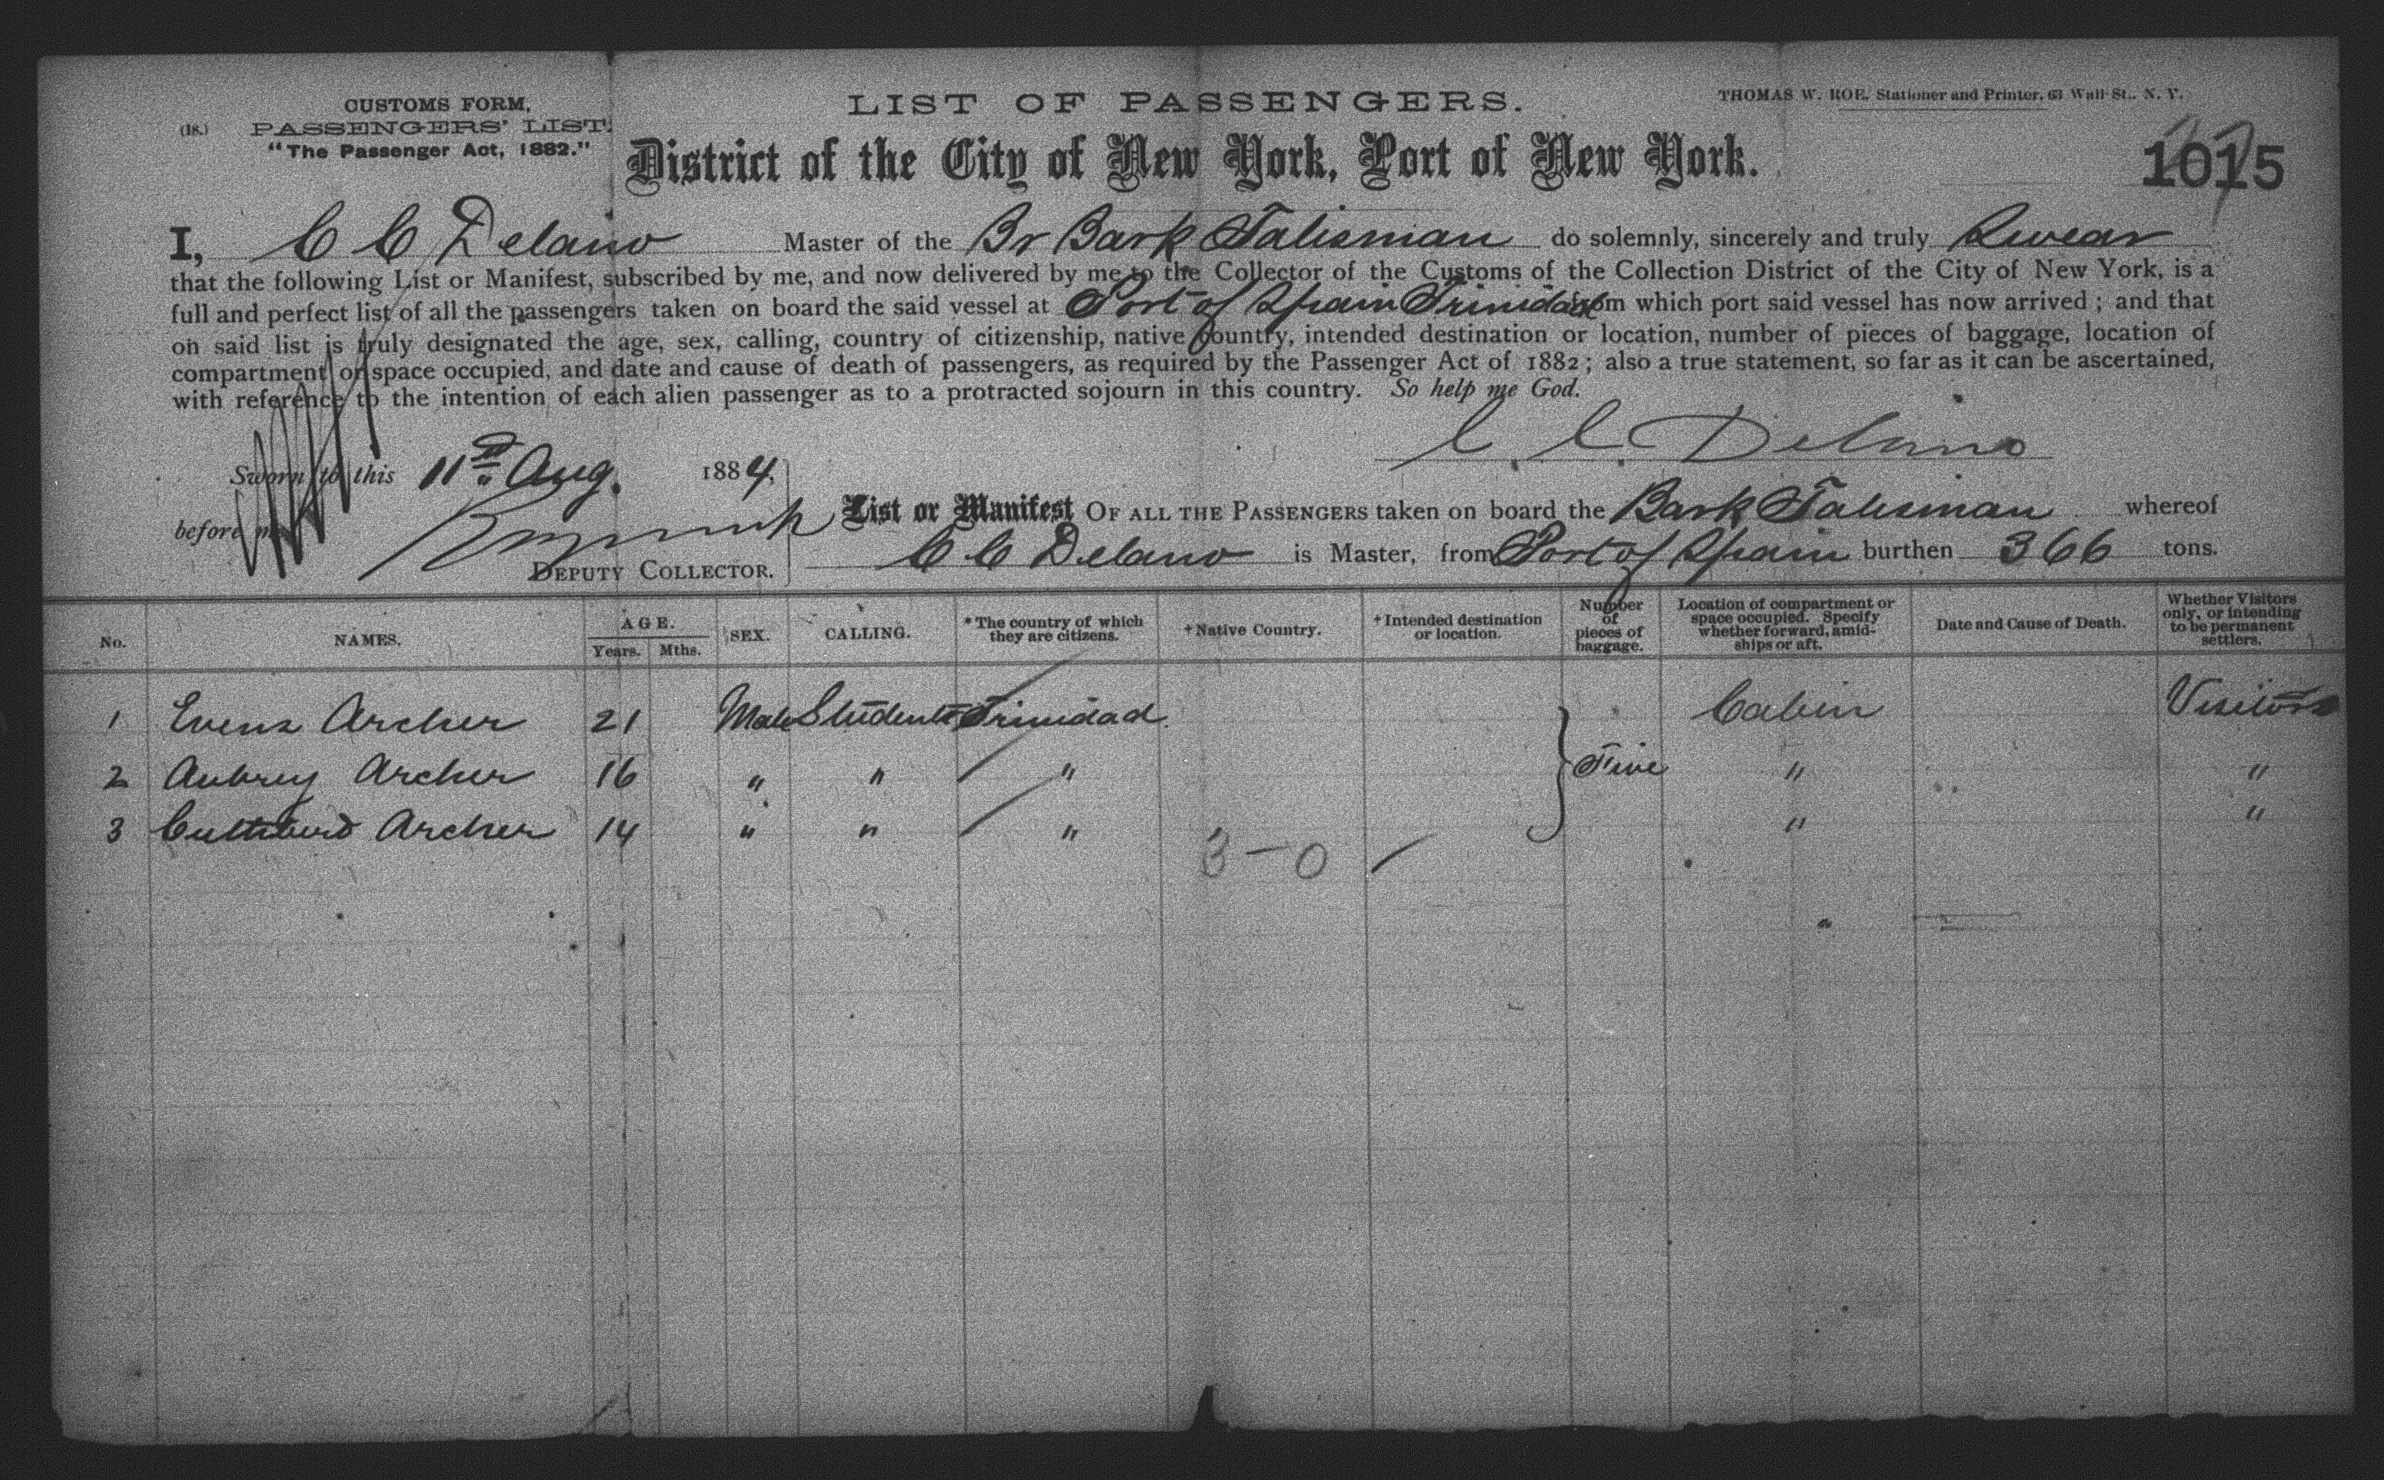 CUSTOMS FORM,
(18.) PASSENGERS' LIST.
"The Passenger Act, 1882."
LIST OF PASSENGERS.
THOMAS W. ROE, Stationer and Printer, 63 Wall St., N. Y.
District of the City of New York, Port of New York.
1015
I, C C Delano Master of the Br Bark Talisman do solemnly, sincerely and truly Swear
that the following List or Manifest, subscribed by me, and now delivered by me to the Collector of the Customs of the Collection District of the City of New York, is a
full and perfect list of all the passengers taken on board the said vessel at Port of Spain Trinidad from which port said vessel has now arrived; and that
on said list is truly designated the age, sex, calling, country of citizenship, native country, intended destination or location, number of pieces of baggage, location of
compartment or space occupied, and date and cause of death of passengers, as required by the Passenger Act of 1882; also a true statement, so far as it can be ascertained,
with reference to the intention of each alien passenger as to a protracted sojourn in this country. So help me God.
C. C. Delano
Sworn to this 11th Aug. 1884,
before me
DEPUTY COLLECTOR.
List or Manifest OF ALL THE PASSENGERS taken on board the Bark Talisman whereof
C C Delano is Master, from Port of Spain burthen 366 tons.
No. NAMES. AGE. Years. Mths. SEX. CALLING. *The country of which they are citizens. +Native Country. +Intended destination or location. Number of pieces of baggage. Location of compartment or space occupied. Specify whether forward, amidships or aft. Date and Cause of Death. Whether Visitors only, or intending to be permanent settlers.
1 Evens Archer 21 Male Students Trinidad Cabin Visitors
2 Aubrey Archer 16 " " " Five " "
3 Cuthbert Archer 14 " " " " "
3 - 0